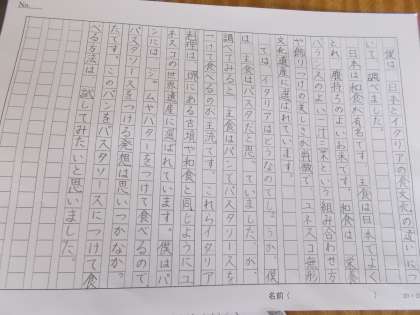 No.
僕は、日本とイタリアの食文化の違いにつ
いて、調べました。
日本は和食が有名です。主食は日本でよく
とれ、腹持ちのよいお米です。和食は、栄養
バランスのよい一汁三菜という組み合わせ方
や飾りつけの美しさが特徴で、ユネスコ無形
文化遺産に選ばれています。
ではイタリアはどうなのでしょうか。僕
は、主食はパスタだと思っていましたが、
調べてみると、主食はパンでパスタソースを
つけて食べるのが主流です。これらイタリア
料理は、堺にある古墳や和食と同じようにユ
ネスコの世界遺産に選ばれています。僕はパ
ンには、ジャムやバターをつけて食べるので
パスタソースをつける発想は思いつかなか
たです。このパンをパスタソースにつけて食
べる方法は、試してみたいと思いました。
名前（　　　　）